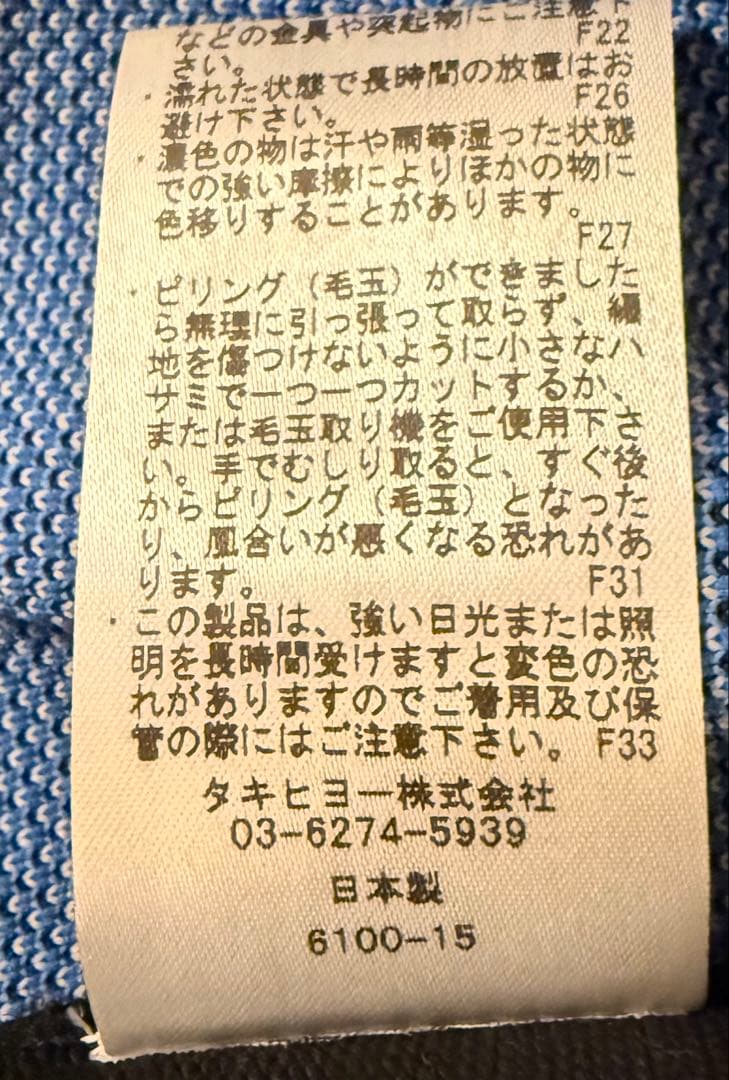 などの金具や突起物にご注意下
さい。 F22
・濡れた状態で長時間の放置はお
避け下さい。 F26
・濃色の物は汗や雨等湿った状態
での強い摩擦によりほかの物に
色移りすることがあります。
F27
・ピリング(毛玉)ができました
ら無理に引っ張って取らず、編
地を傷つけないように小さなハ
サミで一つ一つカットするか、
また は毛玉取り機をご使用下さ
い。手でむしり取ると、すぐ後
からピリング(毛玉)となった
り、風合いが悪くなる恐れがあ
ります。 F31
・この製品は、強い日光または照
明を長時間受けますと変色の恐
れがありますのでご着用及び保
管の際にはご注意下さい。 F33
タキヒヨー株式会社
03-6274-5939
日本製
6100-15